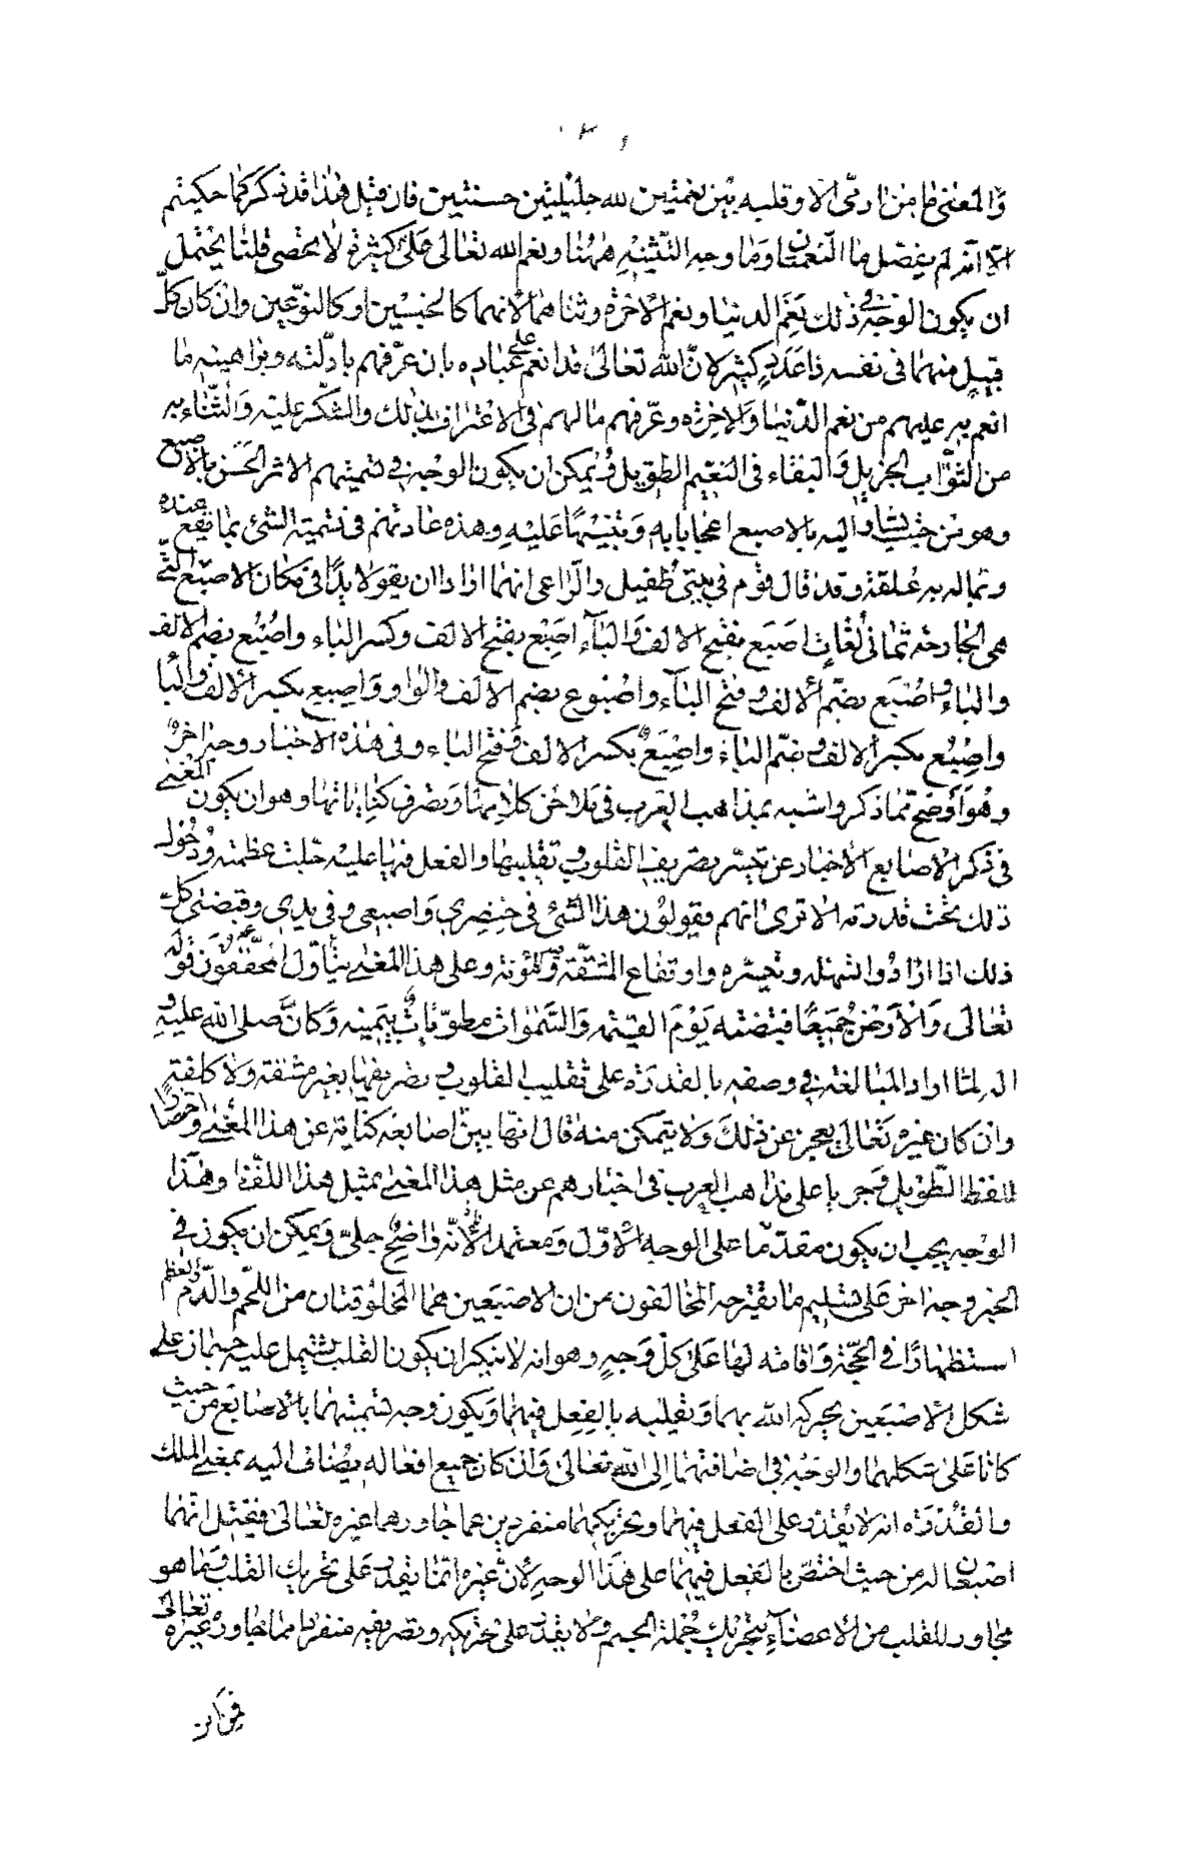 والمعنى ما من ادمى الا وقلبه بين نعمتين لله جليلتين حسنتين فان قيل فهذا قد ذكر كما حكيتم
الا انه لم يفصل ما النعمتان وما وجه التثنيه ههنا ونعم الله تعالى على كثرته لا تحصى قلنا يحتمل
ان يكون الوجه فى ذلك نعم الدنيا ونعم الاخرة وثناهما لانهما كالجنسين او كالنوعين وان كان كل
قبيل منهما فى نفسه ذا عدد كثير لان الله تعالى قد انعم على عباده بان عرفهم بادلته وبراهينه ما
انعم به عليهم من نعم الدنيا والاخرة وعرفهم ما لهم فى الاعتراف بذلك والشكر عليه والثناء به
من الثواب الجزيل والبقاء فى النعيم الطويل ويمكن ان يكون الوجه فى تسميتهم الاثر الحسن بالاصبع
وهو من حيث يشار اليه بالاصبع اعجابا به وتنبيها عليه وهذه عادتهم فى تسمية الشئ بما يقع عنده
وبما له به علقة وقد قال قوم فى بيتى طفيل والراعى انهما ارادا ان يقولا يدا فى مكان الاصبع التى
هى الجارحة ثمانى لغات اصبع بفتح الالف والباء اصبع بفتح الالف وكسر الباء واصبع بضم الالف
والباء واصبع بضم الالف وفتح الباء واصبوع بضم الالف والواو واصبع بكسر الالف والباء
واصبع بكسر الالف وضم الباء واصبع بكسر الالف وفتح الباء وفى هذه الاخبار وجه اخر
وهو اوضح مما ذكر واشبه بمذاهب العرب فى ملاحن كلامها وتصرف كناياتها وهو ان يكون المعنى
فى ذكر الاصابع الاخبار عن تيسر تصريف القلوب وتقليبها والفعل فيها عليه جلت عظمته ودخول
ذلك تحت قدرته الا ترى انهم يقولون هذا الشئ فى خنصرى واصبعى وفى يدى وقبضتى كل
ذلك اذا ارادوا تسهله وتيسره وارتفاع المشقة فيه والمؤنة وعلى هذا المعنى يتأول المحققون قوله
تعالى والارض جميعا قبضته يوم القيمة والسموات مطويات بيمينه وكانه صلى الله عليه و
اله لما اراد المبالغة فى وصفه بالقدرة على تقليب القلوب وتصريفها بغير مشقة ولا كلفة
وان كان غيره تعالى يعجز عن ذلك ولا يتمكن منه قال انها بين اصابعه كناية عن هذا المعنى واختصارا
للفظ الطويل وجريا على مذاهب العرب فى اخبارهم عن مثل هذا المعنى بمثل هذا اللفظ وهذا
الوجه يجب ان يكون مقدما على الوجه الاول ومعتمدا لانه واضح جلى ويمكن ان يكون فى
الخبر وجه اخر على تسليم ما يقترحه المخالفون من ان الاصبعين هما المخلوقتان من اللحم والدم والعظم
استظهارا فى الحجة واقامة لها على كل وجه وهو انه لا ينكر ان يكون القلب يشتمل عليه جسمان على
شكل الاصبعين يحركه الله بهما ويقلبه بالفعل فيهما ويكون وجه تسميتهما بالاصابع من حيث
كانا على شكلهما والوجه فى اضافتهما الى الله تعالى وان كان جميع افعاله يضاف اليه بمعنى الملك
والقدرة انه لا يقدر على الفعل فيهما وتحريكهما منفردين عما جاورهما غيره تعالى فقيل انهما
اصبعان له من حيث اختص بالفعل فيهما على هذا الوجه لان غيره انما يقدر على تحريك القلب وما هو
مجاور للقلب من الاعضاء بتحريك جملة الجسم ولا يقدر على تحريكه وتصريفه منفردا مما جاوره غيره تعالى
فمن اين